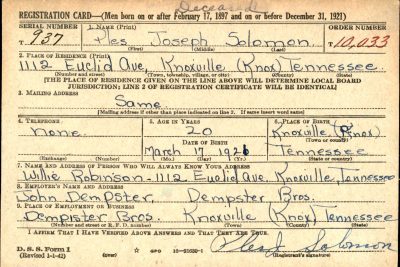 Deceased
REGISTRATION CARD—(Men born on or after February 17, 1897 and on or before December 31, 1921)
SERIAL NUMBER 1. NAME (Print) ORDER NUMBER
T 937 Ples Joseph Solomon T 10,033
(First) (Middle) (Last)
2. PLACE OF RESIDENCE (Print)
1112 Euclid Ave, Knoxville (Knox) Tennessee
(Number and street) (Town, township, village, or city) (County) (State)
[THE PLACE OF RESIDENCE GIVEN ON THE LINE ABOVE WILL DETERMINE LOCAL BOARD
JURISDICTION; LINE 2 OF REGISTRATION CERTIFICATE WILL BE IDENTICAL]
3. MAILING ADDRESS
Same
[Mailing address if other than place indicated on line 2. If same insert word same]
4. TELEPHONE 5. AGE IN YEARS 6. PLACE OF BIRTH
none 20 Knoxville (Knox)
DATE OF BIRTH (Town or county)
March 17 Tennessee
(Exchange) (Number) (Mo.) (Day) (Yr.) (State or country)
7. NAME AND ADDRESS OF PERSON WHO WILL ALWAYS KNOW YOUR ADDRESS
Willie Robinson-1112 Euclid Ave. Knoxville, Tennessee
8. EMPLOYER'S NAME AND ADDRESS
John Dempster, Dempster Bros.
9. PLACE OF EMPLOYMENT OR BUSINESS
Dempster Bros. Knoxville (Knox) Tennessee
(Number and street or R. F. D. number) (Town) (County) (State)
I AFFIRM THAT I HAVE VERIFIED ABOVE ANSWERS AND THAT THEY ARE TRUE.
D. S. S. Form 1
(Revised 1-1-42) (over) GPO 16-21630-1 Ples J Solomon
(Registrant's signature)